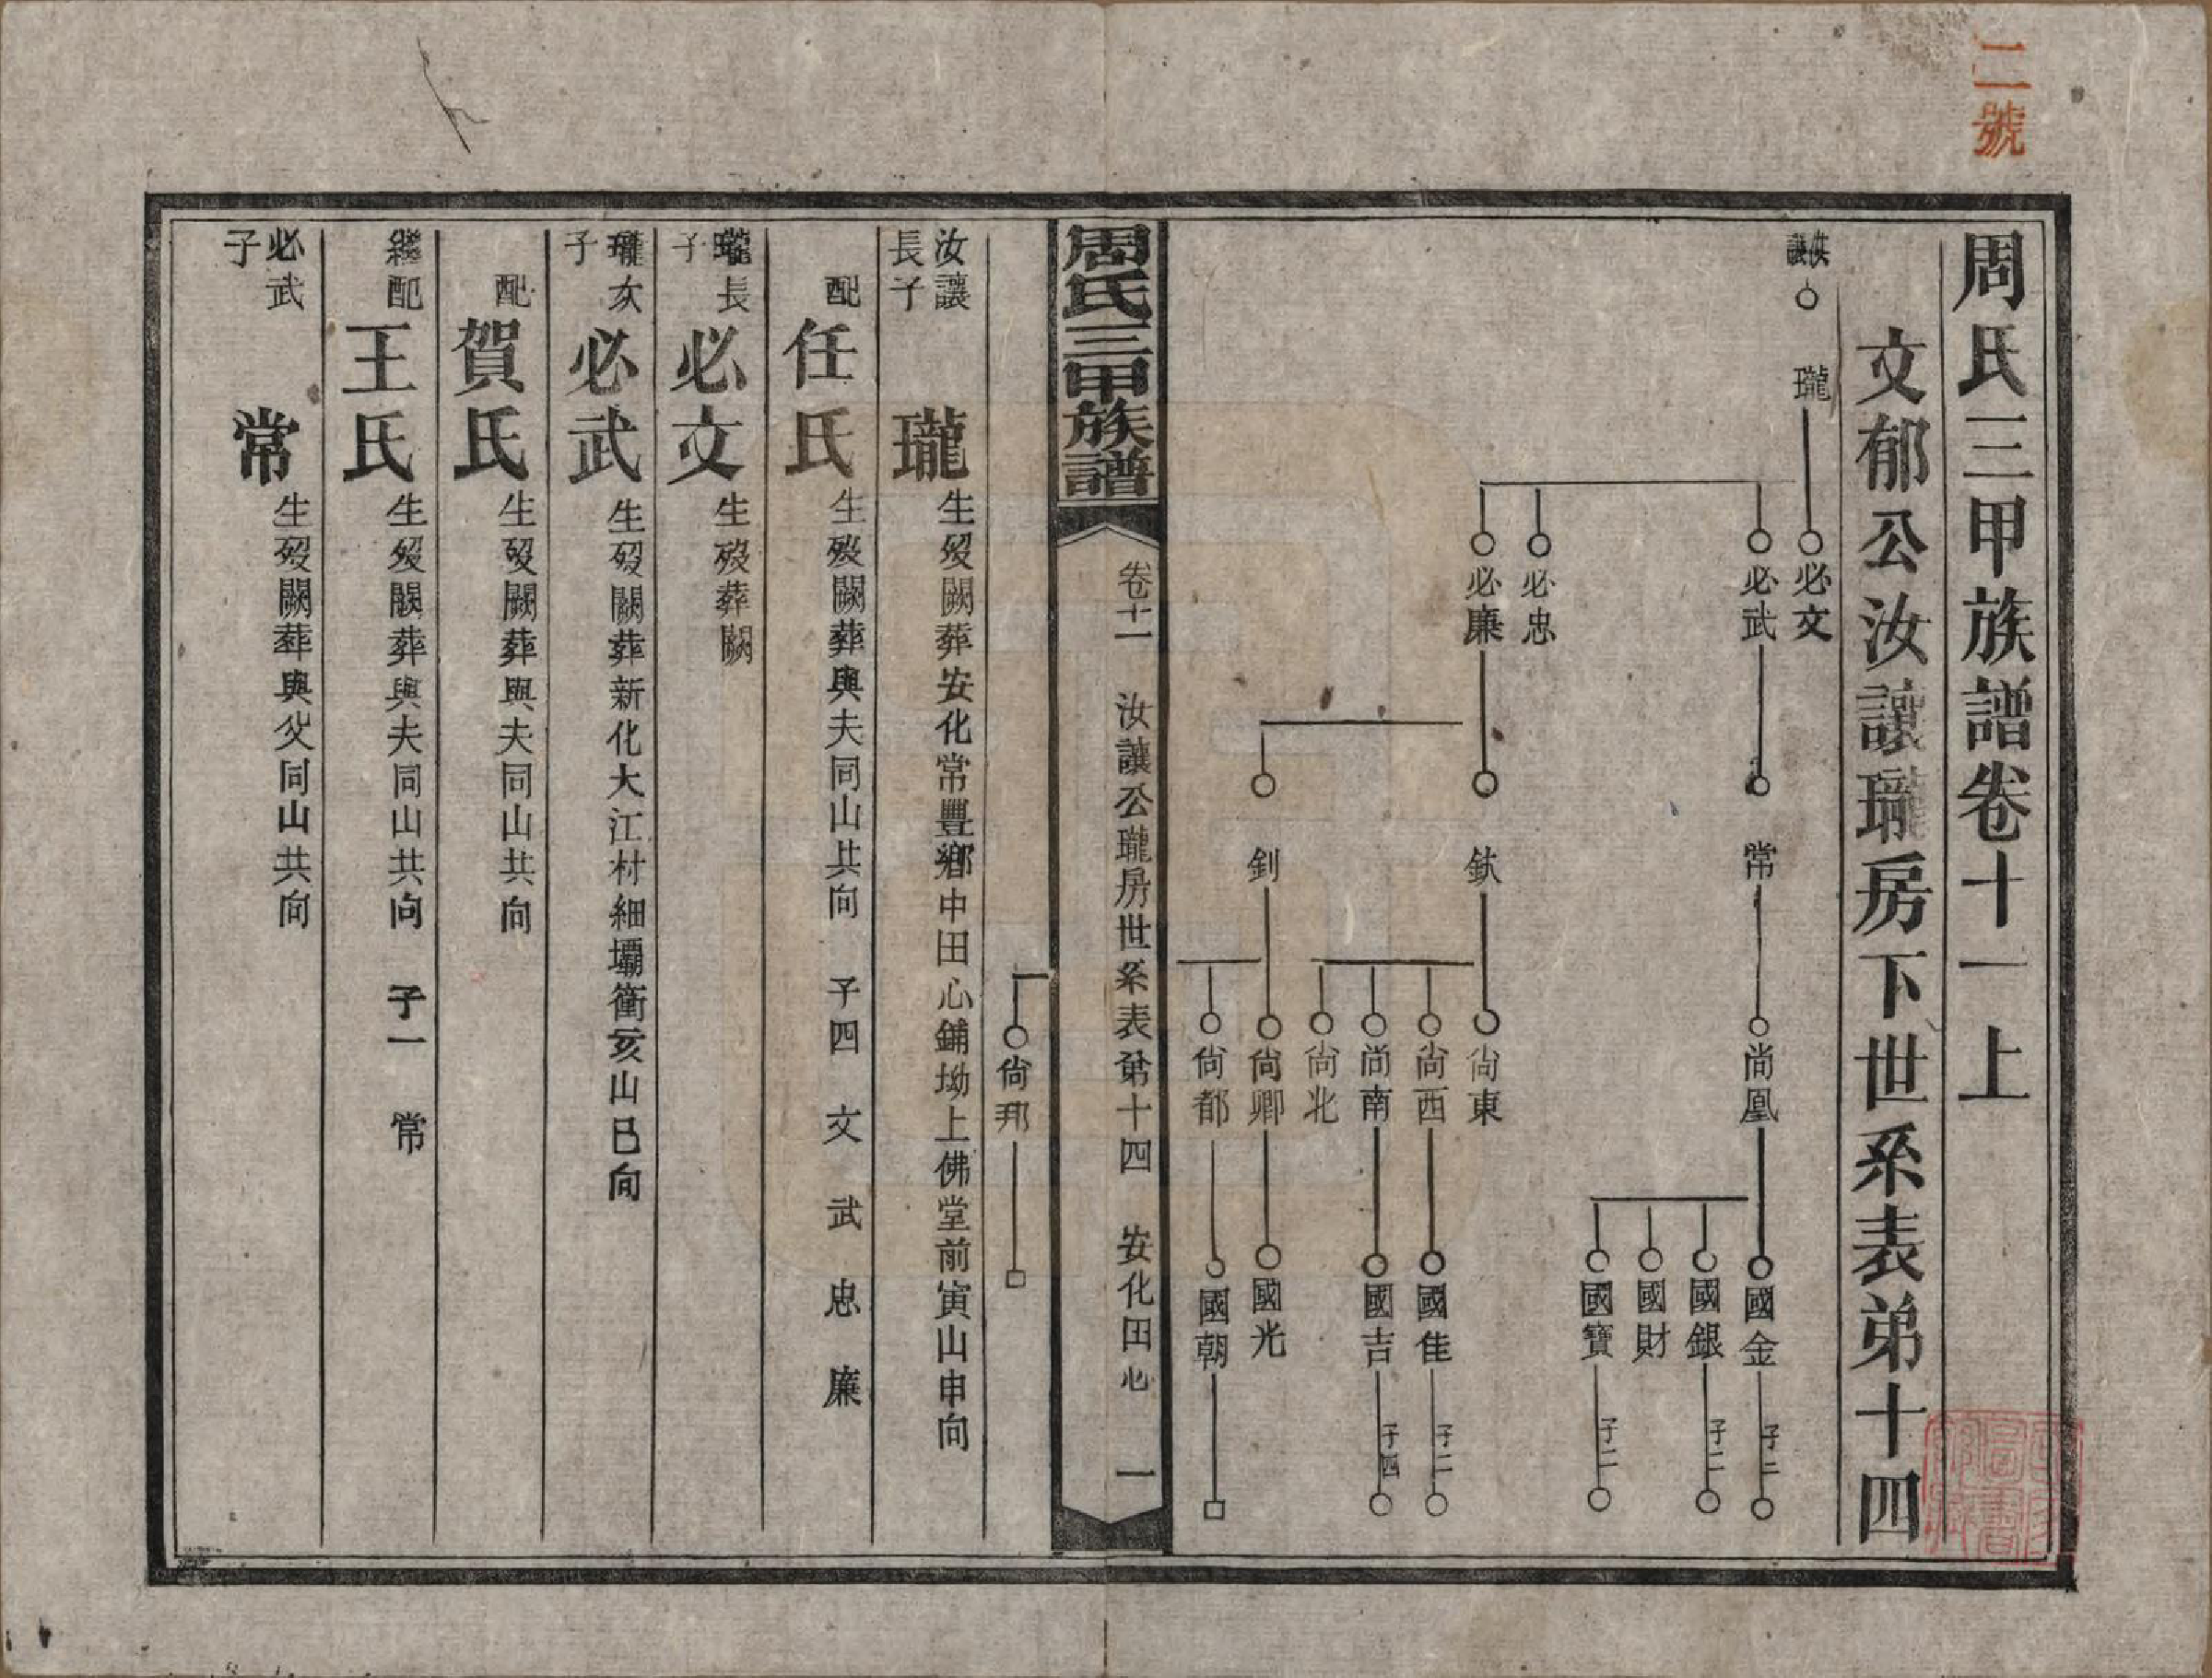 二號
周氏三甲族譜卷十一上
文郁公汝讓瓏房下世系表弟十四
瓏
必文
必武
常
尚凰
國金
子二
國銀
子二
國財
國寶
子二
必忠
必廉
鈥
尚東
尚西
國佳
子二
尚南
國吉
子四
尚北
釗
尚卿
國光
尚都
國朝
周氏三甲族譜
卷十一
汝讓公瓏房世系表弟十四
安化田心
一
尚邦
汝讓長子
瓏
生歿闕葬安化常豐鄉中田心鋪坳上佛堂前寅山申向
配
任氏
生歿闕葬與夫同山共向 子四 文 武 忠 廉
瓏長子
必文
生歿葬闕
瓏次子
必武
生歿闕葬新化大江村細壩衝亥山巳向
配
賀氏
生歿闕葬與夫同山共向
繼配
王氏
生歿闕葬與夫同山共向 子一 常
必武子
常
生歿闕葬與父同山共向